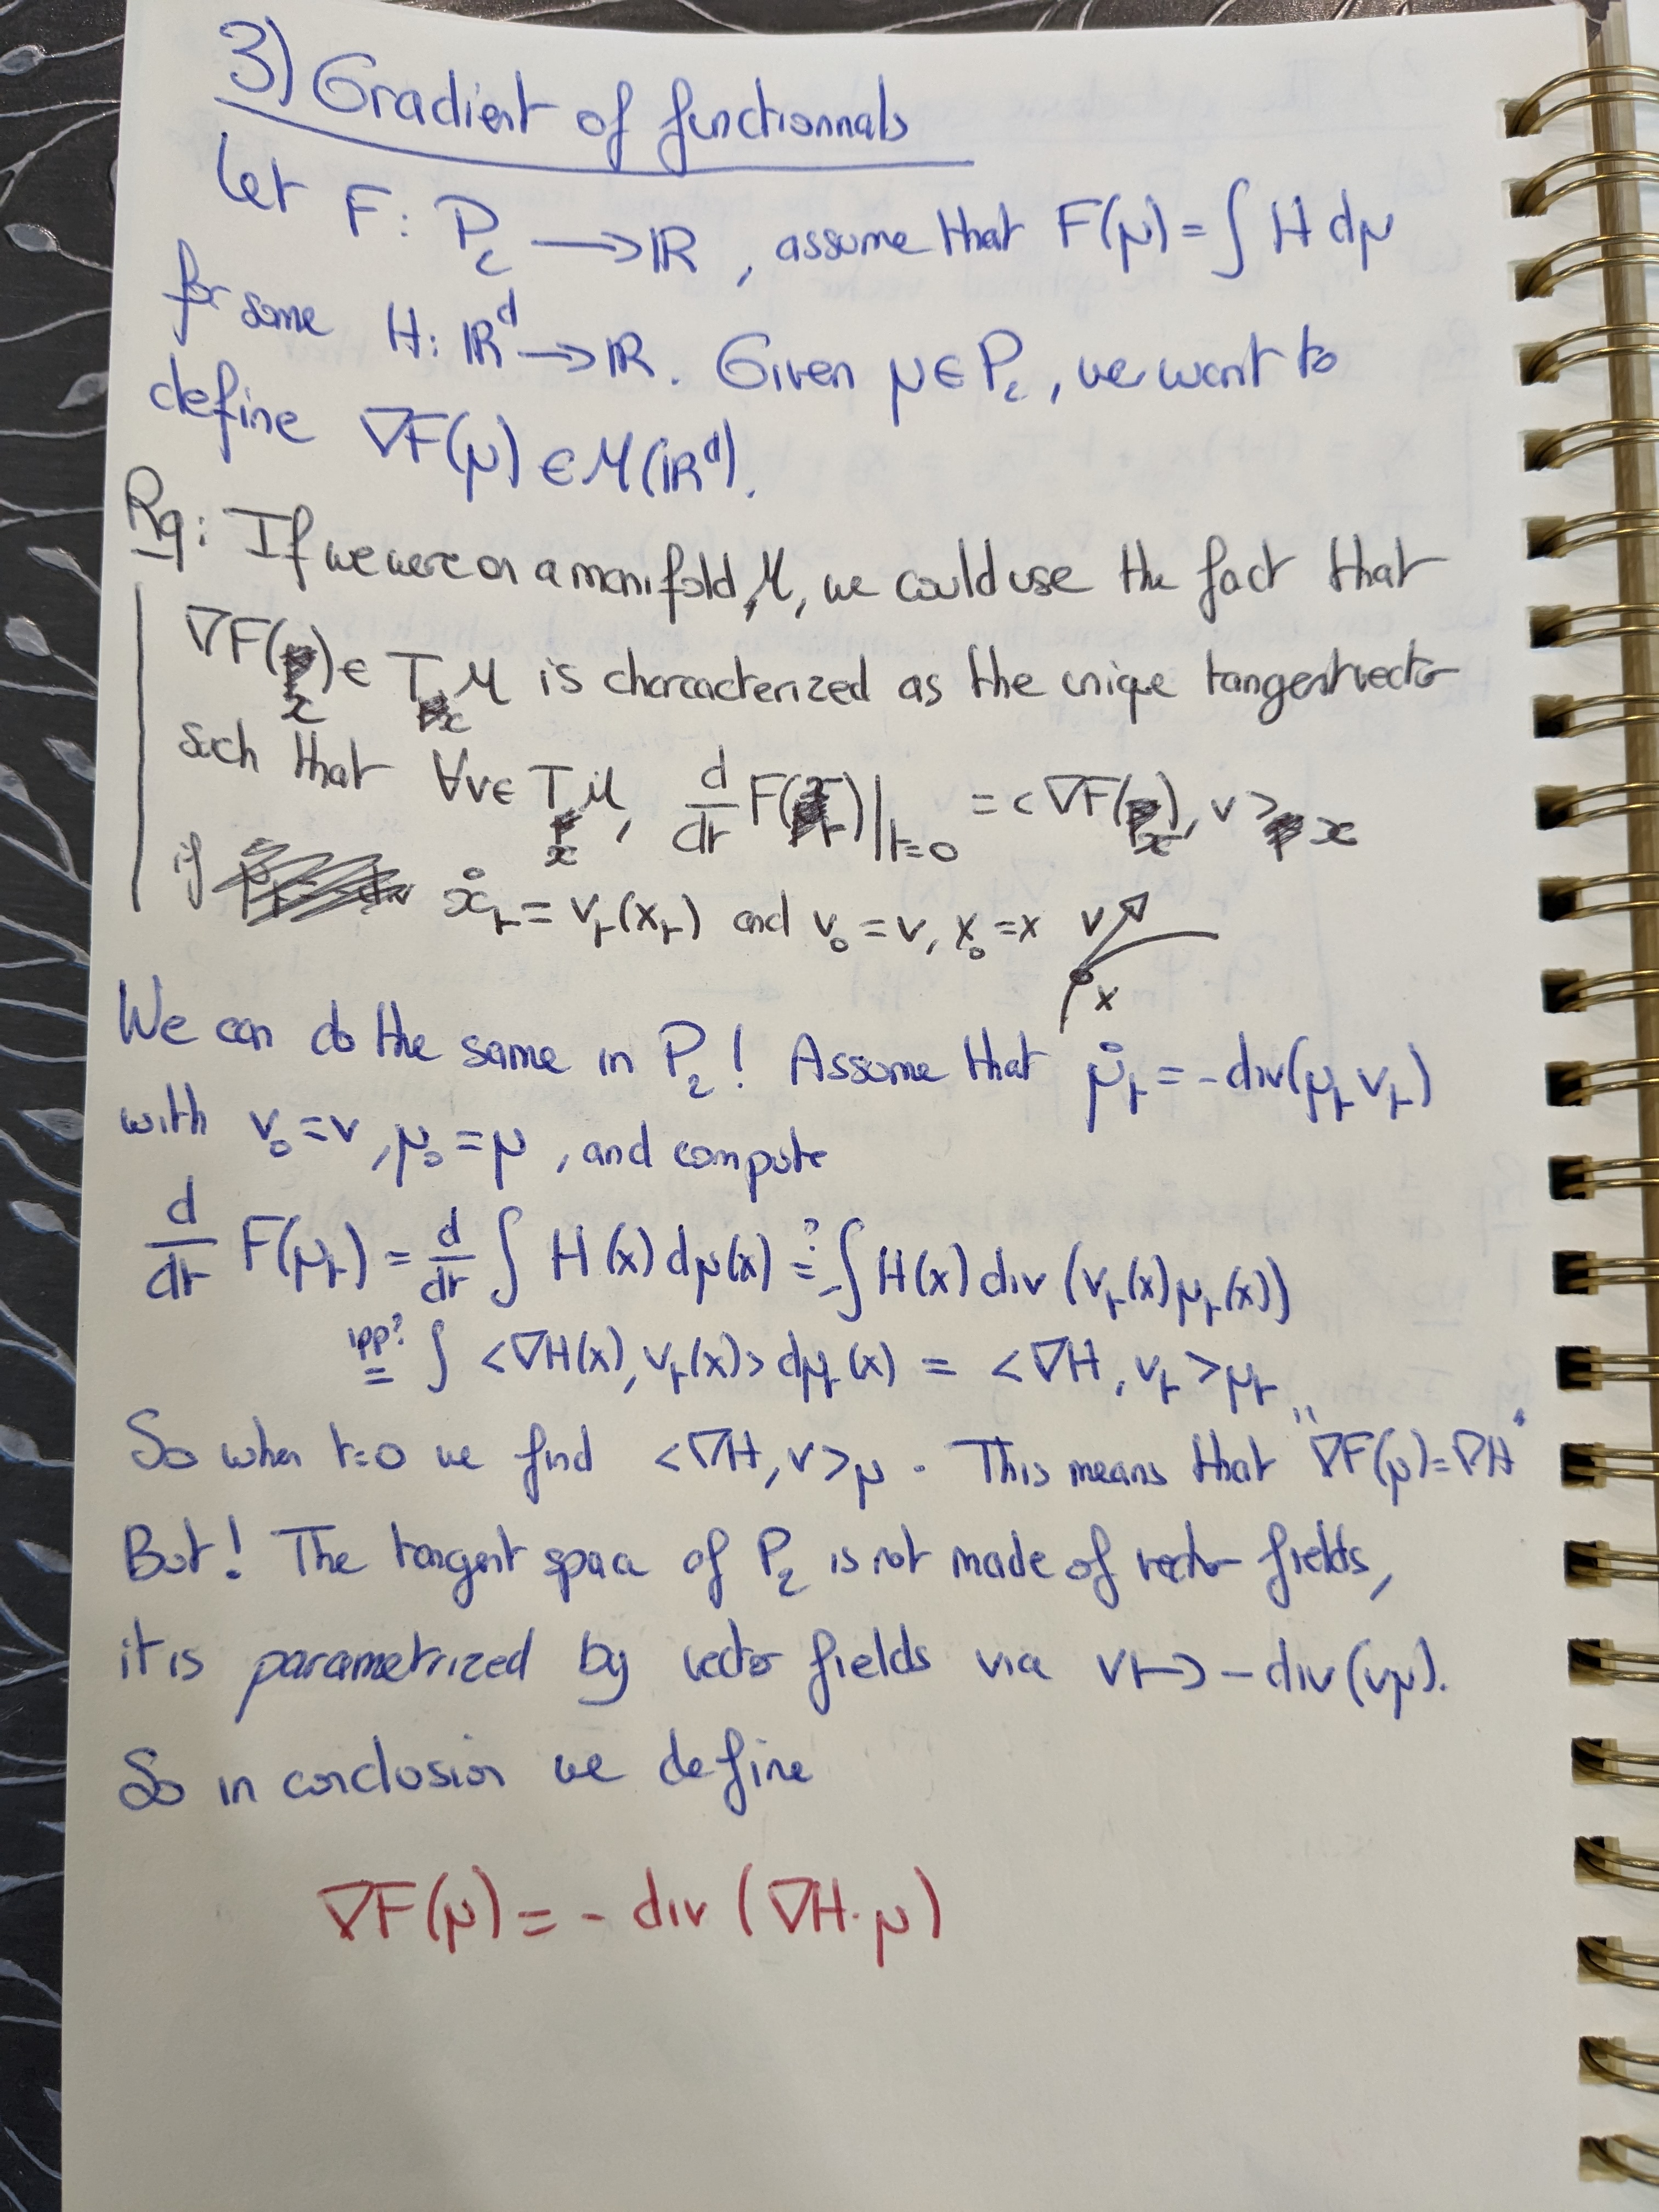 3) Gradient of functionnals
Let F: P₂ ⟶ ℝ, assume that F(μ) = ∫ H dμ
for some H: ℝᵈ ⟶ ℝ. Given μ ∈ P₂, we want to
define ∇F(μ) ∈ M(ℝᵈ).
Rq: If we were on a manifold M, we could use the fact that
∇F(x) ∈ TₓM is characterized as the unique tangent vector
such that ∀v ∈ TₓM, d/dt F(xₜ)|ₜ₌₀ = <∇F(x), v>ₓ
if ẋₜ = vₜ(xₜ) and v₀ = v, x₀ = x
v
x
We can do the same in P₂! Assume that μ̇ₜ = -div(μₜ vₜ)
with v₀ = v, μ₀ = μ, and compute
d/dt F(μₜ) = d/dt ∫ H(x) dμ(x) =? -∫ H(x) div (vₜ(x) μₜ(x))
ipp? = ∫ <∇H(x), vₜ(x)> dμₜ(x) = <∇H, vₜ>μₜ
So when t=0 we find <∇H, v>μ. This means that "∇F(μ) = ∇H"
But! The tangent space of P₂ is not made of vector fields,
it is parametrized by vector fields via v ↦ -div(vμ).
So in conclusion we define
∇F(μ) = - div (∇H·μ)